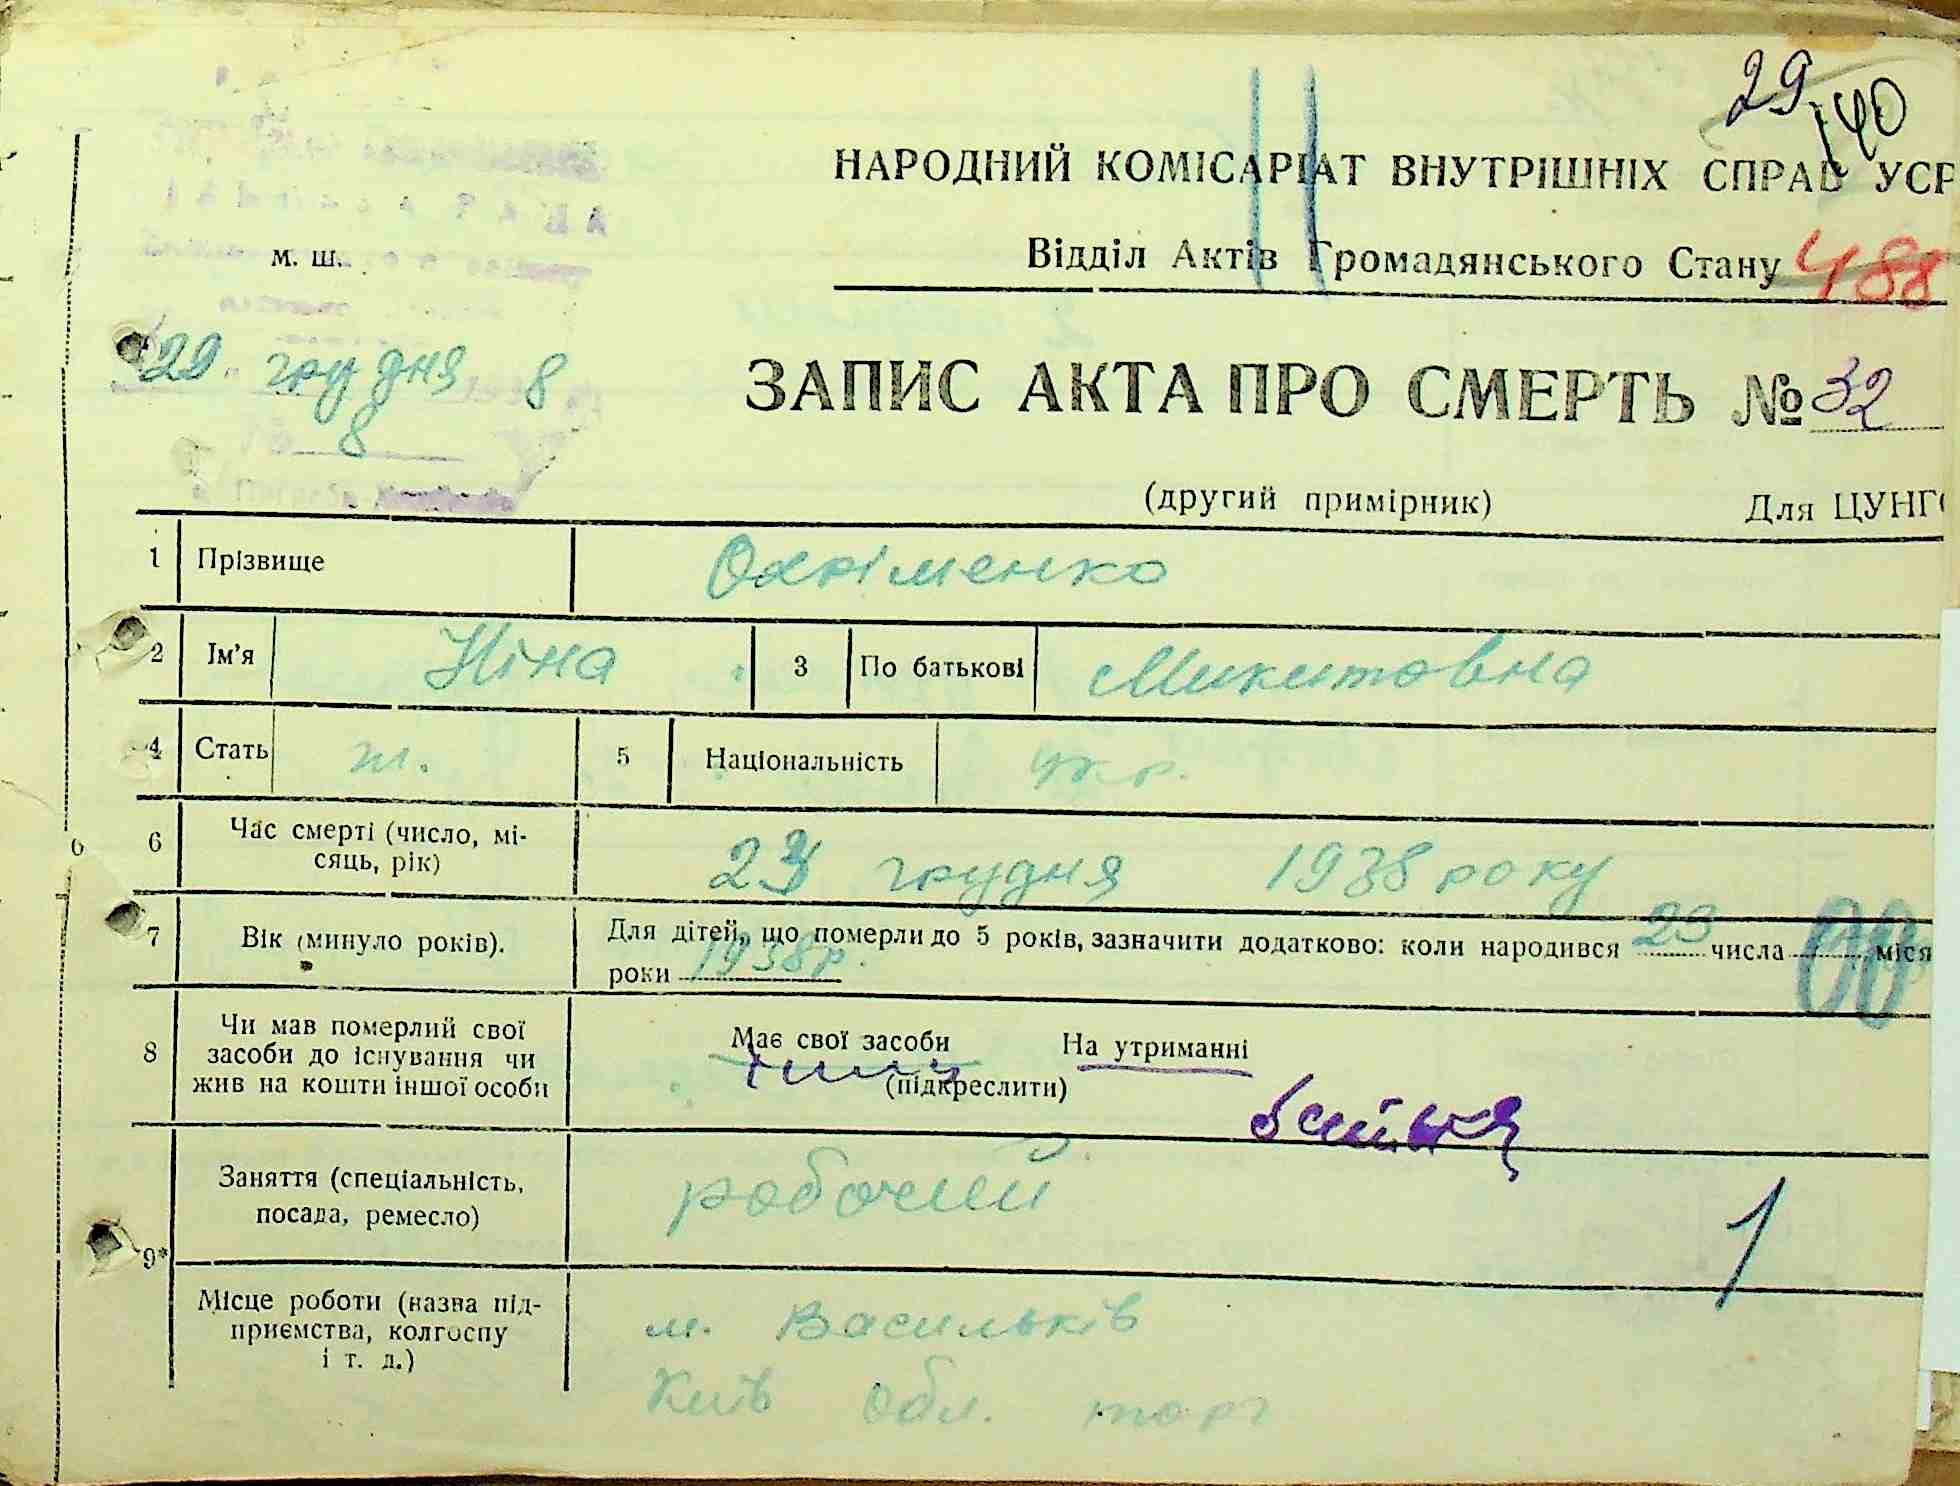 29
140
НАРОДНИЙ КОМІСАРІАТ ВНУТРІШНІХ СПРАВ УСР
м. ш.
Відділ Актів Громадянського Стану
488
29 грудня 8
8
ЗАПИС АКТА ПРО СМЕРТЬ № 32
(другий примірник) Для ЦУНГ
1 Прізвище Охріменко
2 Ім'я Ніна 3 По батькові Микитовна
4 Стать ж. 5 Національність укр.
6 Час смерті (число, мі-
сяць, рік)
23 грудня 1938 року
7 Вік (минуло років).
Для дітей, що померли до 5 років, зазначити додатково: коли народився 23 числа міся
роки 1938 р.
00
8 Чи мав померлий свої
засоби до існування чи
жив на кошти іншої особи
Має свої засоби На утриманні
(підкреслити)
батька
9* Заняття (спеціальність,
посада, ремесло)
робочий
1
Місце роботи (назва під-
приємства, колгоспу
і т. д.)
м. Васильків
Київ обл. торг